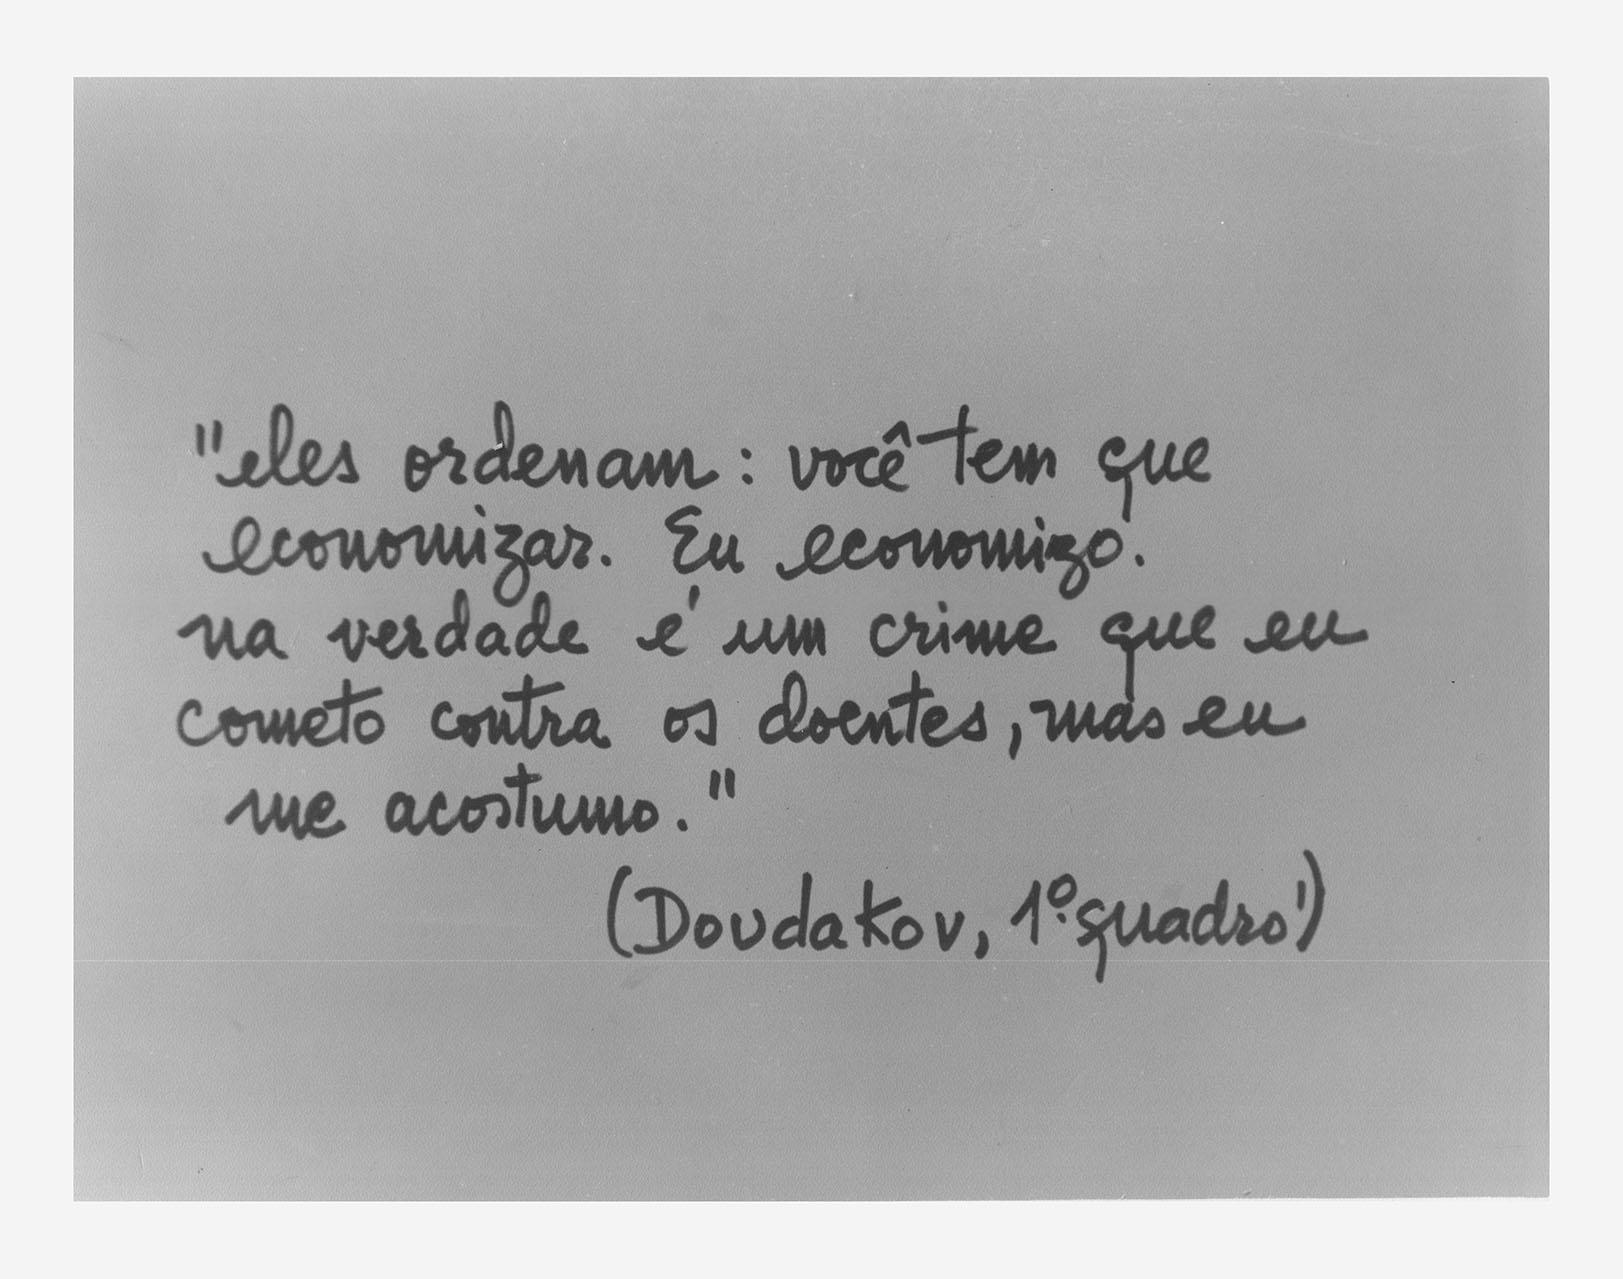 "eles ordenam: você tem que
economizar. Eu economizo.
na verdade é um crime que eu
cometo contra os doentes, mas eu
me acostumo."
(Doudakov, 1º quadro')